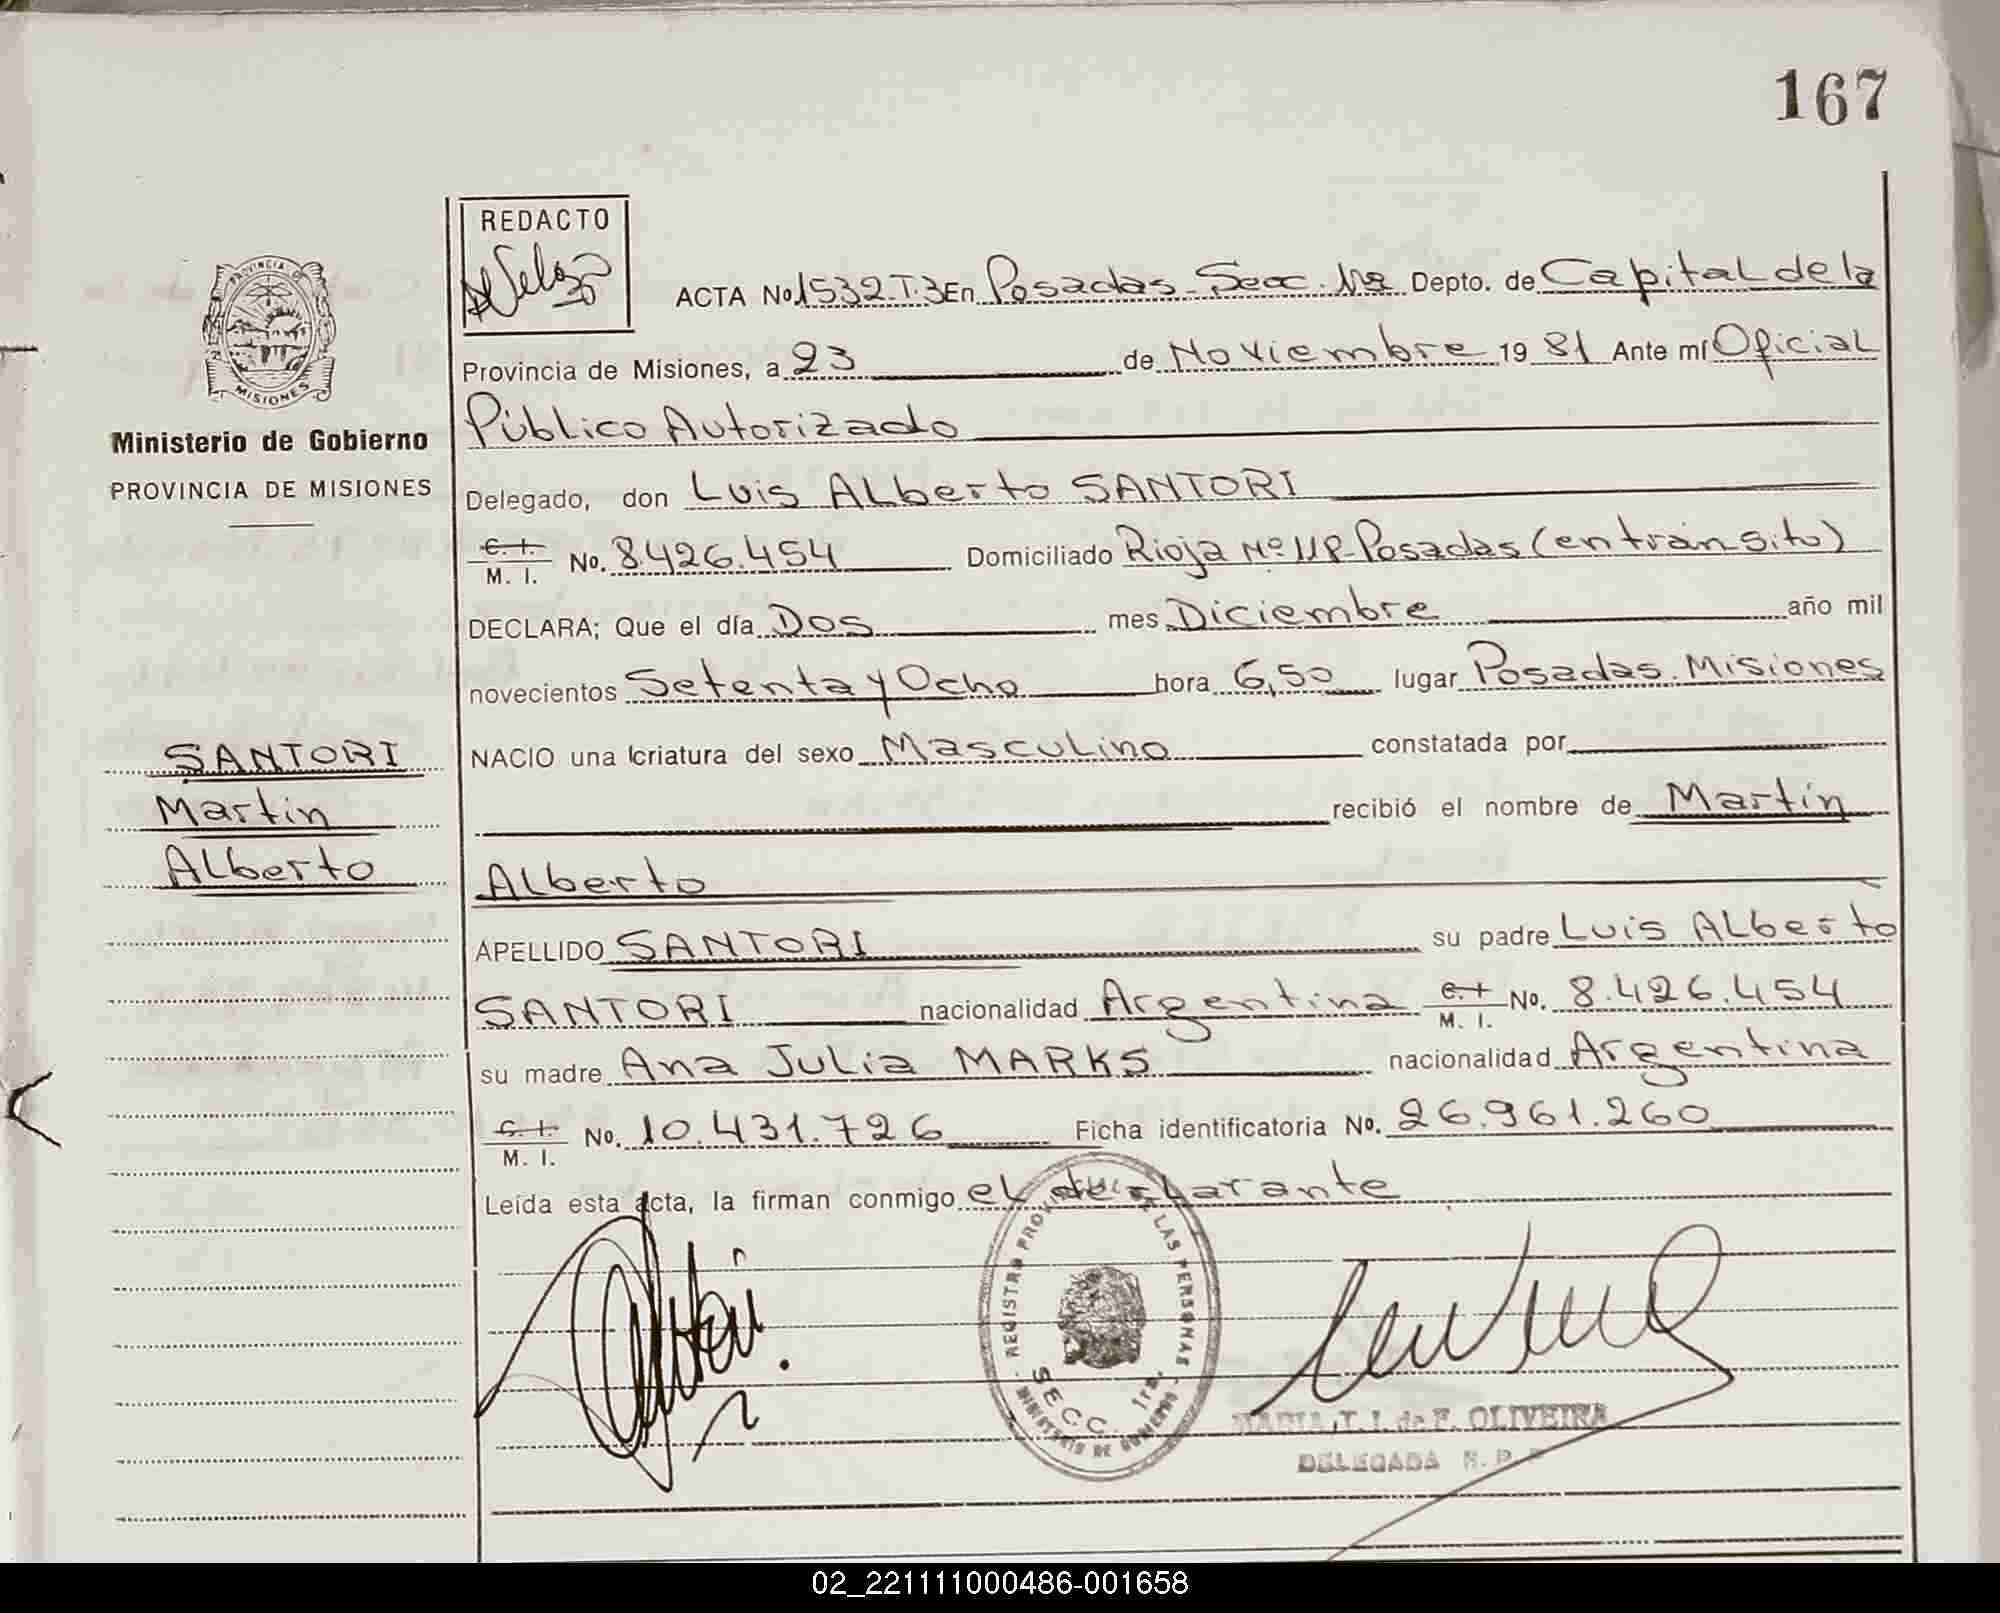 167
REDACTO
ACTA No 1532.T.3 En Posadas - Secc. 1ra Depto. de Capital de la
PROVINCIA DE
MISIONES
Provincia de Misiones, a 23 de Noviembre 19 81 Ante mí Oficial
Público Autorizado
Ministerio de Gobierno
PROVINCIA DE MISIONES
Delegado, don Luis Alberto SANTORI
C. I.
M. I. No. 8.426.454 Domiciliado Rioja Nº 118-Posadas (en tránsito)
DECLARA; Que el día Dos mes Diciembre año mil
novecientos Setenta y Ocho hora 6,50 lugar Posadas. Misiones
NACIO una criatura del sexo Masculino constatada por
recibió el nombre de Martín
Alberto
SANTORI
Martin
Alberto
APELLIDO SANTORI su padre Luis Alberto
SANTORI nacionalidad Argentina C. I.
M. I. No. 8.426.454
su madre Ana Julia MARKS nacionalidad Argentina
C. I.
M. I. No. 10.431.726 Ficha identificatoria No. 26.961.260
Leída esta acta, la firman conmigo el declarante
REGISTRO PROVINCIAL DE LAS PERSONAS
SECC. 1ra.
MINISTERIO DE GOBIERNO
MARIA T. I. de F. OLIVEIRA
DELEGADA R. P.
02_221111000486-001658